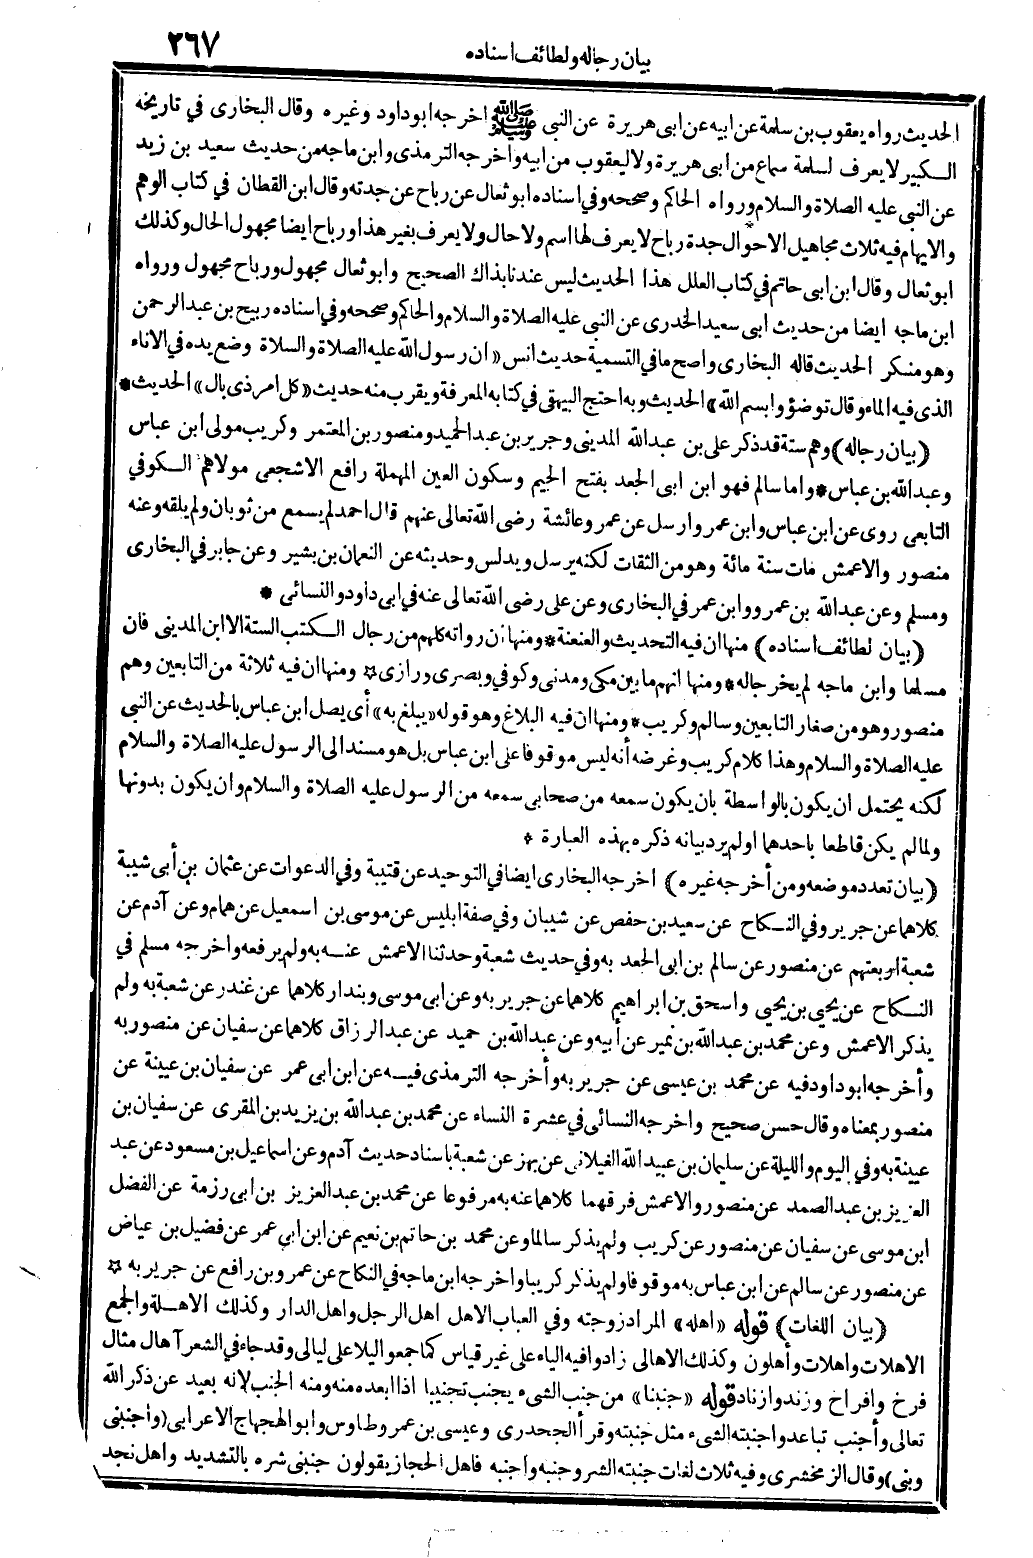 بيان رجاله ولطائف اسناده
٢٦٧
الحديث رواه يعقوب بن سلمة عن ابيه عن ابى هريرة عن النبى ﷺ اخرجه ابو داود وغيره وقال البخارى في تاريخه
الكبير لا يعرف لسلمة سماع من ابى هريرة ولا ليعقوب من ابيه وأخرجه الترمذى وابن ماجه من حديث سعيد بن زيد
عن النبى عليه الصلاة والسلام ورواه الحاكم وصححه وفي اسناده ابو ثعال عن رباح عن جدته وقال ابن القطان في كتاب الوهم
والايهام فيه ثلاث مجاهيل الاحوال جدة رباح لا يعرف لها اسم ولا حال ولا يعرف بغير هذا ورباح ايضا مجهول الحال وكذلك
ابو ثعال وقال ابن ابى حاتم في كتاب العلل هذا الحديث ليس عندنا بذاك الصحيح وابو ثعال مجهول ورباح مجهول ورواه
ابن ماجه ايضا من حديث ابى سعيد الخدرى عن النبى عليه الصلاة والسلام والحاكم وصححه وفي اسناده ربيح بن عبد الرحمن
وهو منكر الحديث قاله البخارى واصح ما في التسمية حديث انس «ان رسول الله عليه الصلاة والسلاة وضع يده في الاناء
الذى فيه الماء وقال توضؤوا بسم الله» الحديث وبه احتج البيهقى في كتابه المعرفة ويقرب منه حديث «كل امر ذى بال» الحديث *
(بيان رجاله) وهم ستة قد ذكر على بن عبد الله المدينى وجرير بن عبد الحميد ومنصور بن المعتمر وكريب مولى ابن عباس
وعبد الله بن عباس * واما سالم فهو ابن ابى الجعد بفتح الجيم وسكون العين المهملة رافع الاشجعى مولاهم الكوفي
التابعى روى عن ابن عباس وابن عمر وارسل عن عمر وعائشة رضى الله تعالى عنهم قال احمد لم يسمع من ثوبان ولم يلقه وعنه
منصور والاعمش مات سنة مائة وهو من الثقات لكنه يرسل ويدلس وحديثه عن النعمان بن بشير وعن جابر في البخارى
ومسلم وعن عبد الله بن عمرو وابن عمر في البخارى وعن على رضى الله تعالى عنه في ابى داود والنسائى *
(بيان لطائف اسناده) منها ان فيه التحديث والعنعنة * ومنها ان رواته كلهم من رجال الكتب الستة الا ابن المدينى فان
مسلما وابن ماجه لم يخرجا له * ومنها انهم ما بين مكى ومدنى وكوفي وبصرى ورازى * ومنها ان فيه ثلاثة من التابعين وهم
منصور وهو من صغار التابعين وسالم وكريب * ومنها ان فيه البلاغ وهو قوله «يبلغ به» أى يصل ابن عباس بالحديث عن النبى
عليه الصلاة والسلام وهذا كلام كريب وغرضه أنه ليس موقوفا على ابن عباس بل هو مسند الى الرسول عليه الصلاة والسلام
لكنه يحتمل ان يكون بالواسطة بان يكون سمعه من صحابى سمعه من الرسول عليه الصلاة والسلام وان يكون بدونها
ولما لم يكن قاطعا باحدهما اولم يرد بيانه ذكره بهذه العبارة *
(بيان تعدد موضعه ومن أخرجه غيره) اخرجه البخارى ايضا في التوحيد عن قتيبة وفي الدعوات عن عثمان بن أبى شيبة
كلاهما عن جرير وفي النكاح عن سعيد بن حفص عن شيبان وفي صفة ابليس عن موسى بن اسمعيل عن همام وعن آدم عن
شعبة اربعتهم عن منصور عن سالم بن ابى الجعد به وفي حديث شعبة وحدثنا الاعمش عنه به ولم يرفعه واخرجه مسلم في
النكاح عن يحيى بن يحيى واسحق بن ابراهيم كلاهما عن جرير به وعن ابى موسى وبندار كلاهما عن غندر عن شعبة به ولم
يذكر الاعمش وعن محمد بن عبد الله بن نمير عن أبيه وعن عبد الله بن حميد عن عبد الرزاق كلاهما عن سفيان عن منصور به
وأخرجه ابو داود فيه عن محمد بن عيسى عن جرير به وأخرجه الترمذى فيه عن ابن ابى عمر عن سفيان بن عيينة عن
منصور بمعناه وقال حسن صحيح واخرجه النسائى في عشرة النساء عن محمد بن عبد الله بن يزيد بن المقرى عن سفيان بن
عيينة به وفي اليوم والليلة عن سليمان بن عبيد الله الغيلانى عن بهز عن شعبة باسناد حديث آدم وعن اسماعيل بن مسعود عن عبد
العزيز بن عبد الصمد عن منصور والاعمش فرقهما كلاهما عنه به مرفوعا عن محمد بن عبد العزيز بن ابى رزمة عن الفضل
ابن موسى عن سفيان عن منصور عن كريب ولم يذكر سالما وعن محمد بن حاتم بن نعيم عن ابن ابى عمر عن فضيل بن عياض
عن منصور عن سالم عن ابن عباس به موقوفا ولم يذكر كريبا واخرجه ابن ماجه في النكاح عن عمرو بن رافع عن جرير به *
(بيان اللغات) قوله «اهله» المراد زوجته وفي العباب الاهل اهل الرجل واهل الدار وكذلك الاهلة والجمع
الاهلات واهلات وأهلون وكذلك الاهالى زادوا فيه الياء على غير قياس كما جمعوا ليلا على ليالى وقد جاء في الشعر آهال مثال
فرخ وافراخ وزند وازناد قوله «جنبنا» من جنب الشىء يجنب تجنيبا اذا ابعده منه ومنه الجنب لانه بعيد عن ذكر الله
تعالى وأجنب تباعد واجنبته الشىء مثل جنبته وقرأ الجحدرى وعيسى بن عمر وطاوس وابو الهجهاج الاعرابى (واجنبنى
وبنى) وقال الزمخشرى وفيه ثلاث لغات جنبته الشر وجنبه واجنبه فاهل الحجاز يقولون جنبنى شره بالتشديد واهل نجد